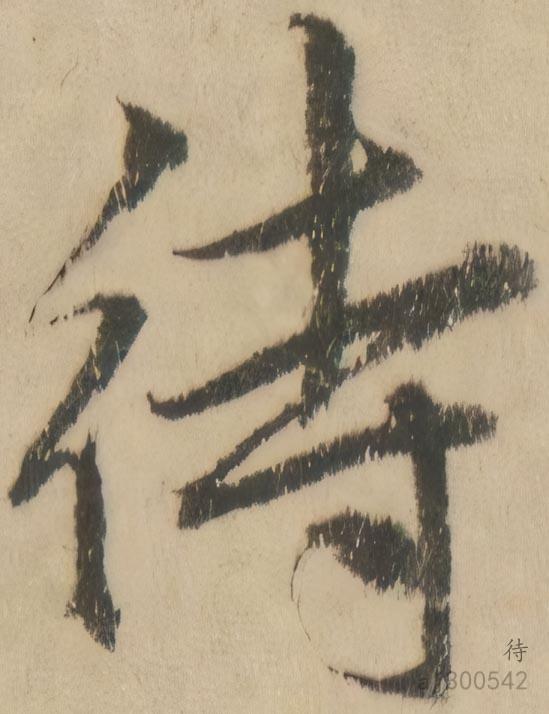 待
待
a1300542